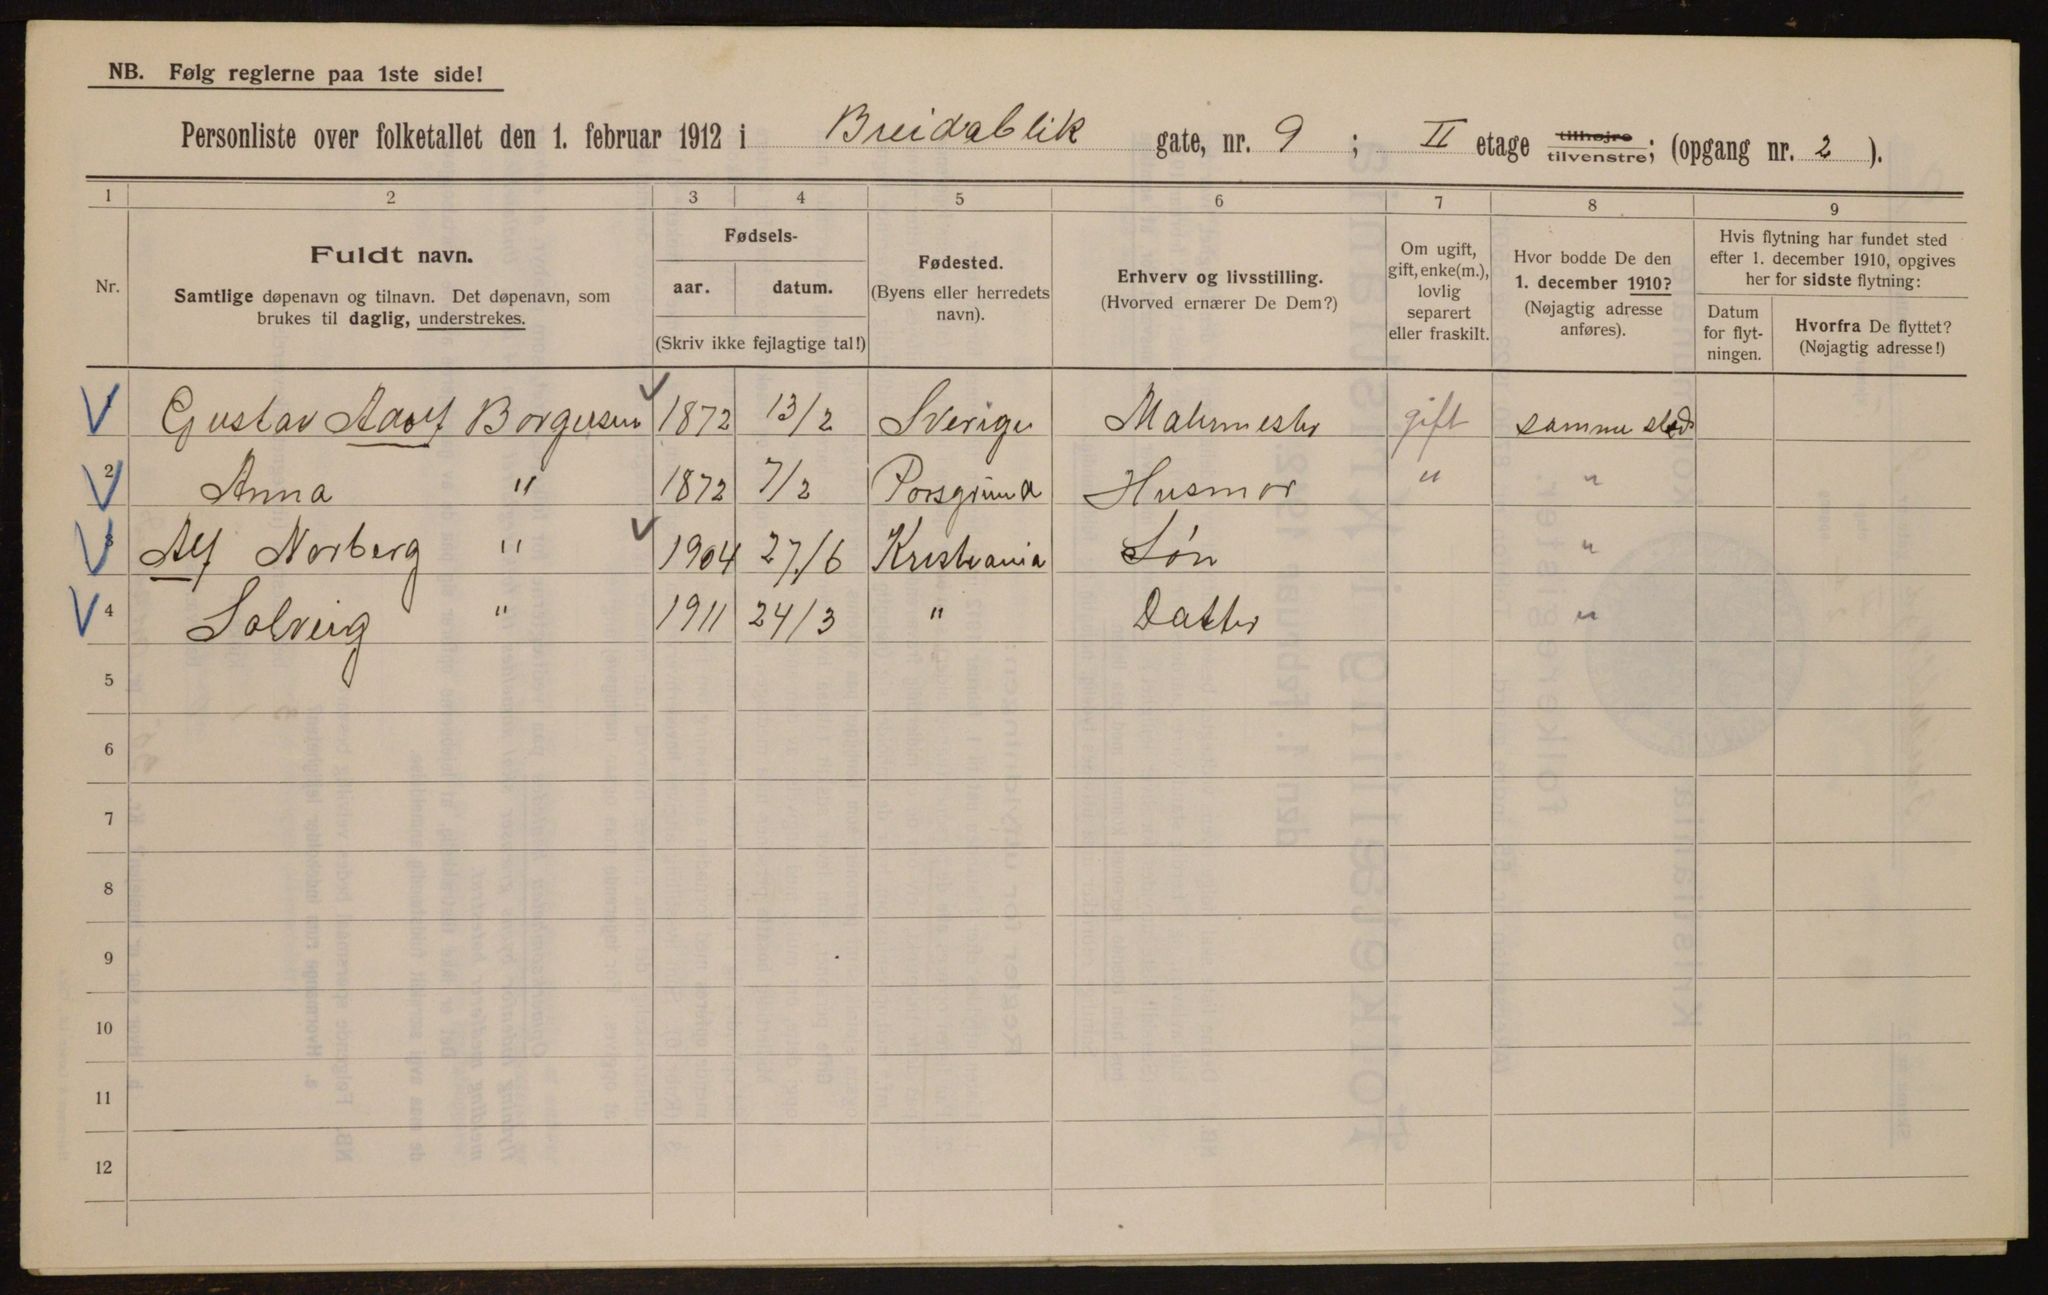 NB. Følg reglerne paa 1ste side!
Personliste over folketallet den 1. februar 1912 i Breidablik gate, nr. 9 ; II etage tilhøjre tilvenstre; (opgang nr. 2 ).
1 2 3 4 5 6 7 8 9
Nr.
Fuldt navn.
Samtlige døpenavn og tilnavn. Det døpenavn, som
brukes til daglig, understrekes.
Fødsels-
aar. datum.
(Skriv ikke fejlagtige tal!)
Fødested.
(Byens eller herredets
navn).
Erhverv og livsstilling.
(Hvorved ernærer De Dem?)
Om ugift,
gift, enke(m.),
lovlig
separert
eller fraskilt.
Hvor bodde De den
1. december 1910?
(Nøjagtig adresse
anføres).
Hvis flytning har fundet sted
efter 1. december 1910, opgives
her for sidste flytning:
Datum
for flyt-
ningen.
Hvorfra De flyttet?
(Nøjagtig adresse!)
1 Gustav Adolf Borgersen 1872 13/2 Sverige Malermester gift samme sted
2 Anna " 1872 7/2 Porsgrund Husmor " "
3 Alf Norberg " 1904 27/6 Kristiania Søn "
4 Solveig " 1911 24/3 " Datter "
5
6
7
8
9
10
11
12